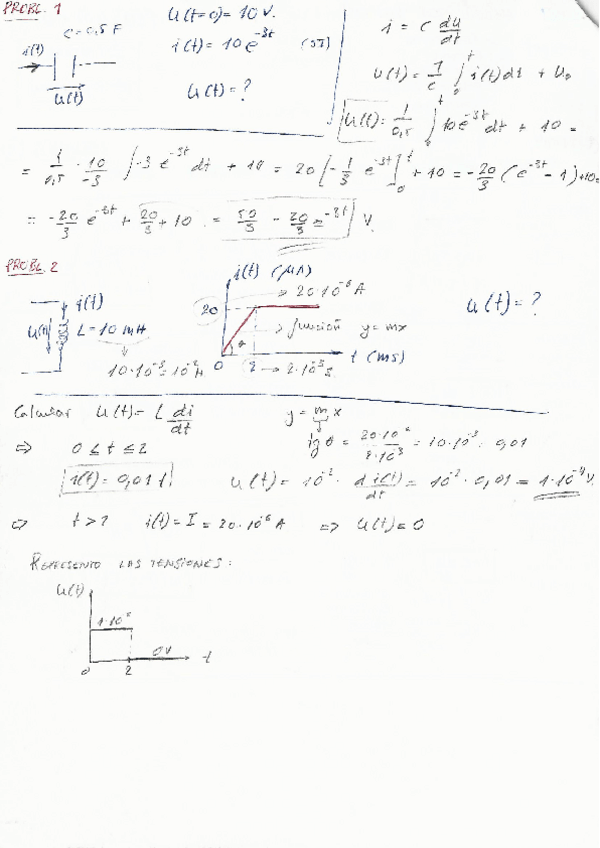 PROBL. 1
C = 0,5 F
i(t)
u(t)
u(t=0) = 10 V.
i(t) = 10 e^-3t
u(t) = ?
i = C du/dt
u(t) = 1/C ∫_0^t i(t) dt + U_0
u(t) = 1/0,5 ∫_0^t 10 e^-3t dt + 10 =
= 1/0,5 · 10/-3 ∫ -3 e^-3t dt + 10 = 20 [-1/3 e^-3t]_0^t + 10 = -20/3 (e^-3t - 1) + 10 =
= -20/3 e^-3t + 20/3 + 10 = 50/3 - 20/3 e^-3t V.
PROBL. 2
i(t)
u(t)
L = 10 mH
10·10^-3 = 10^-2 H
i(t) (μA)
20
→ 20·10^-6 A
→ función y = mx
0
2 → 2·10^-3 s
t (ms)
u(t) = ?
Calcular u(t) = L di/dt
y = m x
⇒ 0 ≤ t ≤ 2
i(t) = 0,01 t
u(t) = 10^-2 · d i(t)/dt = 10^-2 · 0,01 = 1·10^-4 V.
⇒ t > 2 i(t) = I = 20·10^-6 A ⇒ u(t) = 0
REPRESENTO LAS TENSIONES:
u(t)
0V
0
2
t